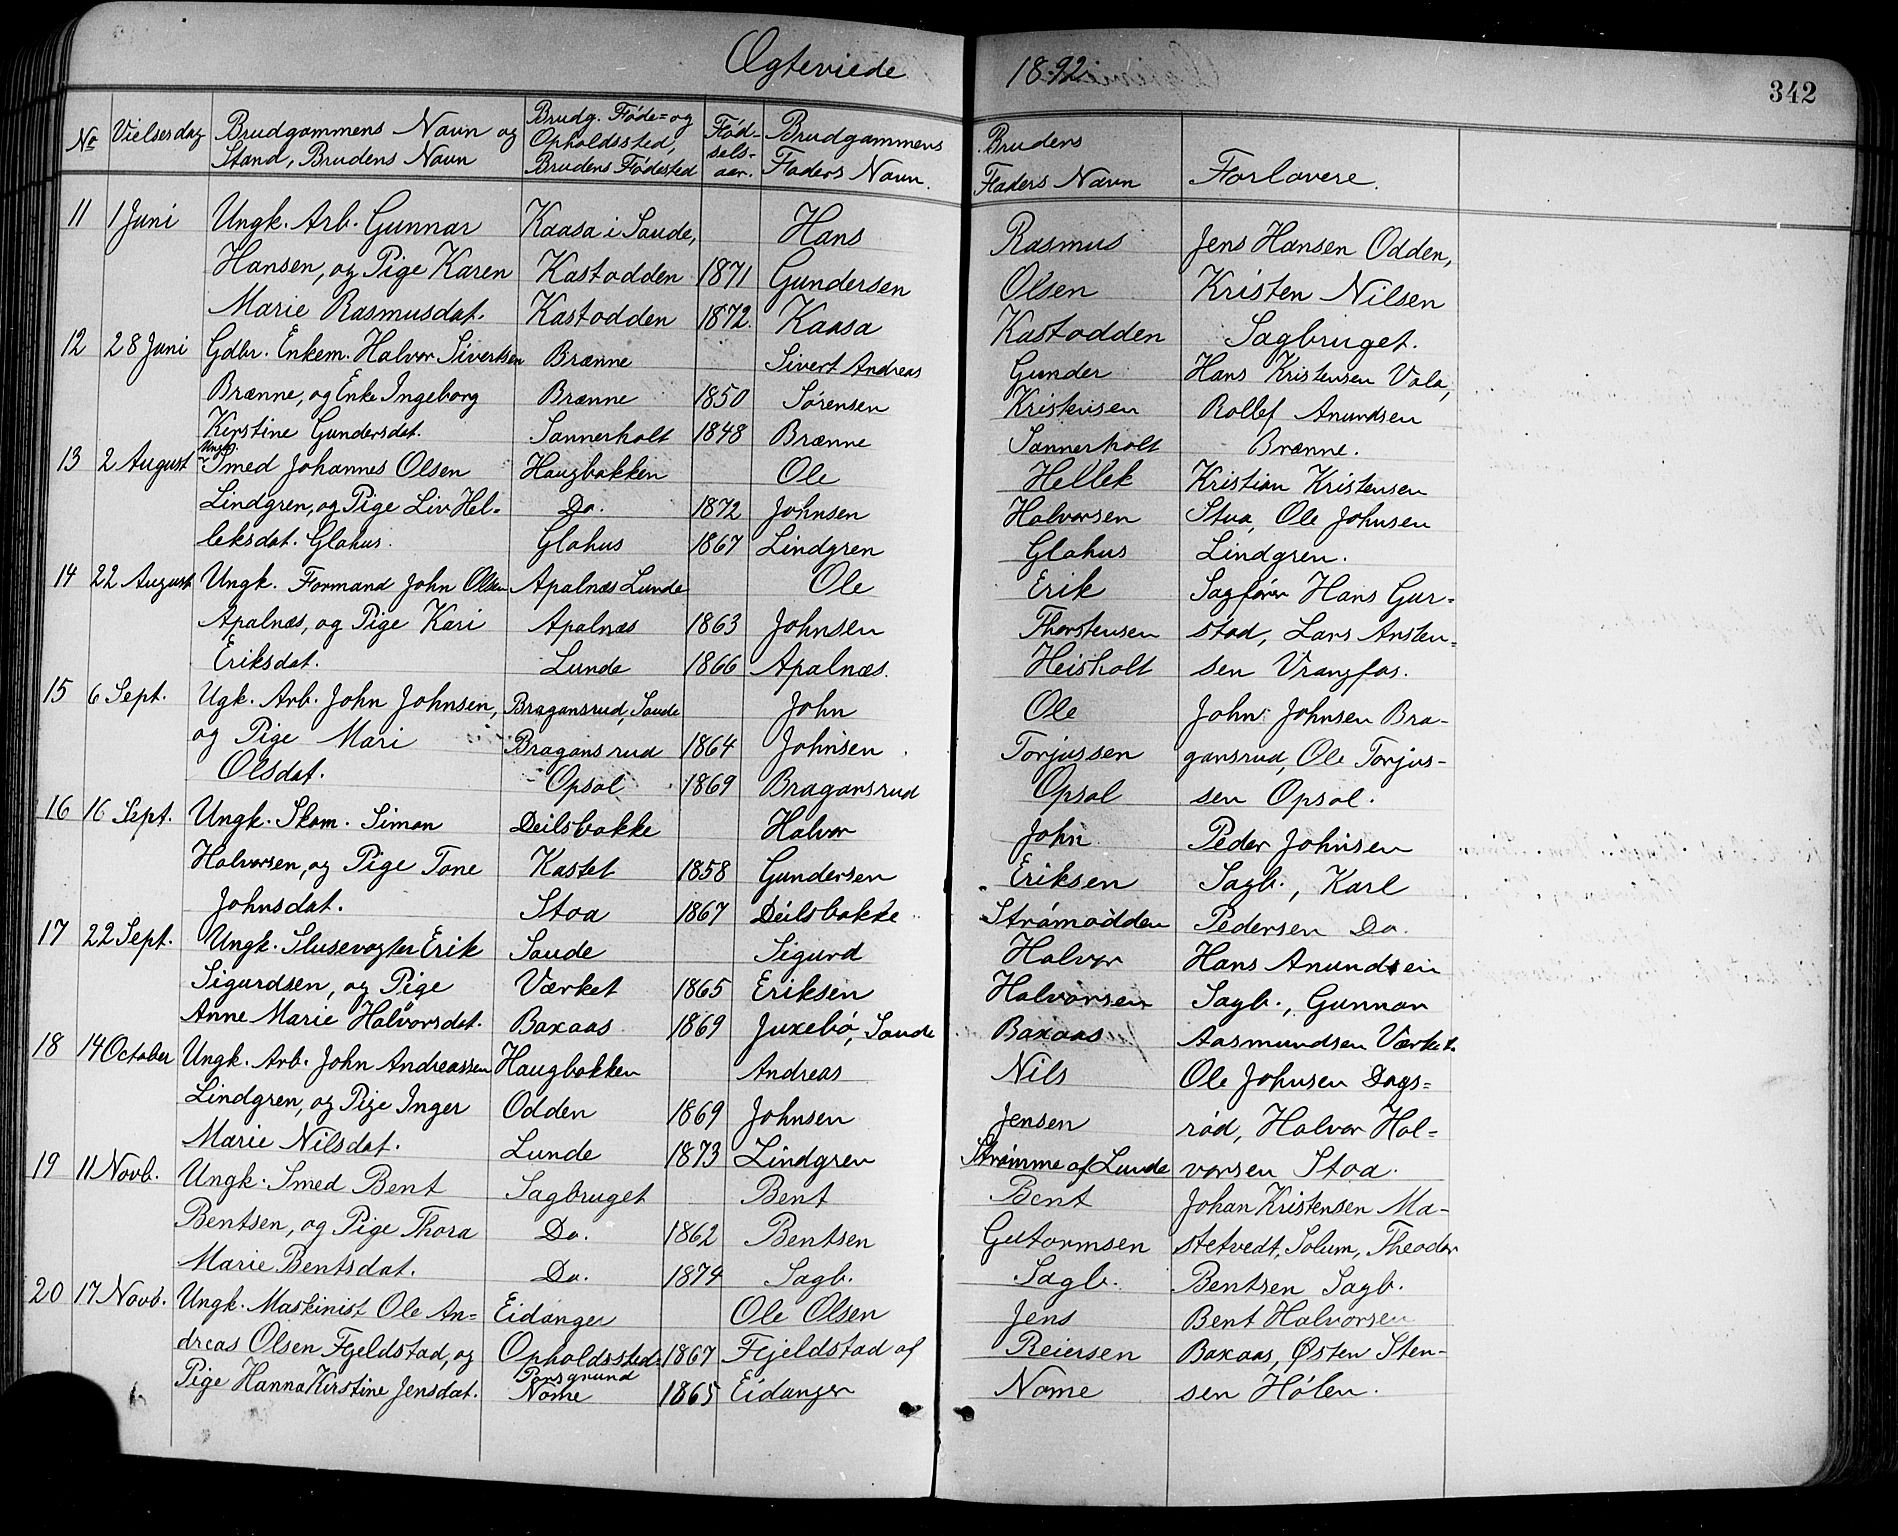 Ægteviede 1892.
342
No Vielsesdag Brudgommens Navn og Stand, Brudens Navn Brudg. Føde= og Opholdssted, Brudens Fødested Fød-sels-aar. Brudgommens Faders Navn. Brudens Faders Navn Forlovere.
11 1 Juni Ungk. Arb. Gunnar Kaasa i Saude, Hans Rasmus Jens Hansen Odden,
Hansen, og Pige Karen Kastodden 1871 Gundersen Olsen Kristen Nilsen
Marie Rasmusdat. Kastodden 1872 Kaasa Kastodden Sagbruget.
12 28 Juni Gdbr. Enkem. Halvor Sivertsen Brænne Sivert Andreas Gunder Hans Kristensen Vala,
Brænne, og Enke Ingeborg Brænne 1850 Sørensen Kristensen Rollef Anundsen
Kirstine Gundersdat. Sannerholt 1848 Brænne Sannerholt Brænne.
13 2 August Ungk. Smed Johannes Olsen Haugbakken Ole Hellek Kristian Kristensen
Lindgren, og Pige Liv Hel= Do. 1872 Johnsen Halvorsen Stoa, Ole Johnsen
leksdat. Glahus. Glahus 1867 Lindgren Glahus Lindgren.
14 22 August Ungk. Formand John Olsen Apalnæs Lunde Ole Erik Sagfører Hans Gur=
Apalnæs, og Pige Kari Apalnæs 1863 Johnsen Thorstensen stad, Lars Ansten=
Eriksdat. Lunde 1866 Apalnæs. Heisholt sen Vrangfos.
15 6 Sept. Ugk. Arb. John Johnsen, Bragansrud, Saude John Ole John Johnsen Bra-
og Pige Mari Bragansrud 1864 Johnsen Torjussen gansrud, Ole Torjus-
Olsdat. Opsal 1869 Bragansrud Opsal sen Opsal.
16 16 Sept. Ungk. Skom. Simon Deilsbakke Halvor John Peder Johnsen
Halvorsen, og Pige Tone Kastet 1858 Gundersen Eriksen Sagb., Karl
Johnsdat. Stoa 1867 Deilsbakke Strømodden Pedersen Do.
17 22 Sept. Ungk. Slusevogter Erik Saude Sigurd Halvor Hans Anundsen
Sigurdsen, og Pige Værket 1865 Eriksen Halvorsen Sagb., Gunnar
Anne Marie Halvorsdat. Baxaas 1869 Juxebø, Saude Baxaas Aasmundsen Værket.
18 14 October Ungk. Arb. John Andreassen Haugbakken Andreas Nils Ole Johnsen Dags=
Lindgren, og Pige Inger Odden 1869 Johnsen Jensen rød, Halvor Hal=
Marie Nilsdat. Lunde 1873 Lindgren Strømme af Lunde vorsen Stoa.
19 11 Novb. Ungk. Smed Bent Sagbruget Bent Bent Johan Kristensen Ma-
Bentsen, og Pige Thora Do. 1862 Bentsen Gutormsen stetvedt, Solum, Theodor
Marie Bentsdat. Do. 1874 Sagb. Sagb. Bentsen Sagb.
20 17 Novb. Ungk. Maskinist Ole An= Eidanger Ole Olsen Jens Bent Halvorsen
dreas Olsen Fjeldstad, og Opholdssted: Porsgrund 1867 Fjeldstad af Reiersen Baxaas, Østen Sten-
Pige Hanna Kirstine Jensdat. Nome 1865 Eidanger Nome sen Hølen.